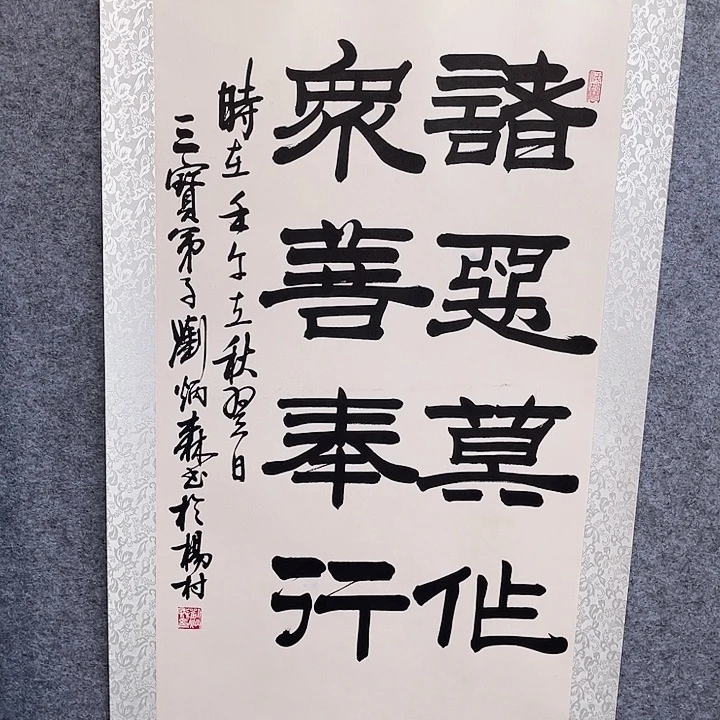 諸惡莫作
衆善奉行
時在壬午立秋翌日
三寳弟子劉炳森書於楊村